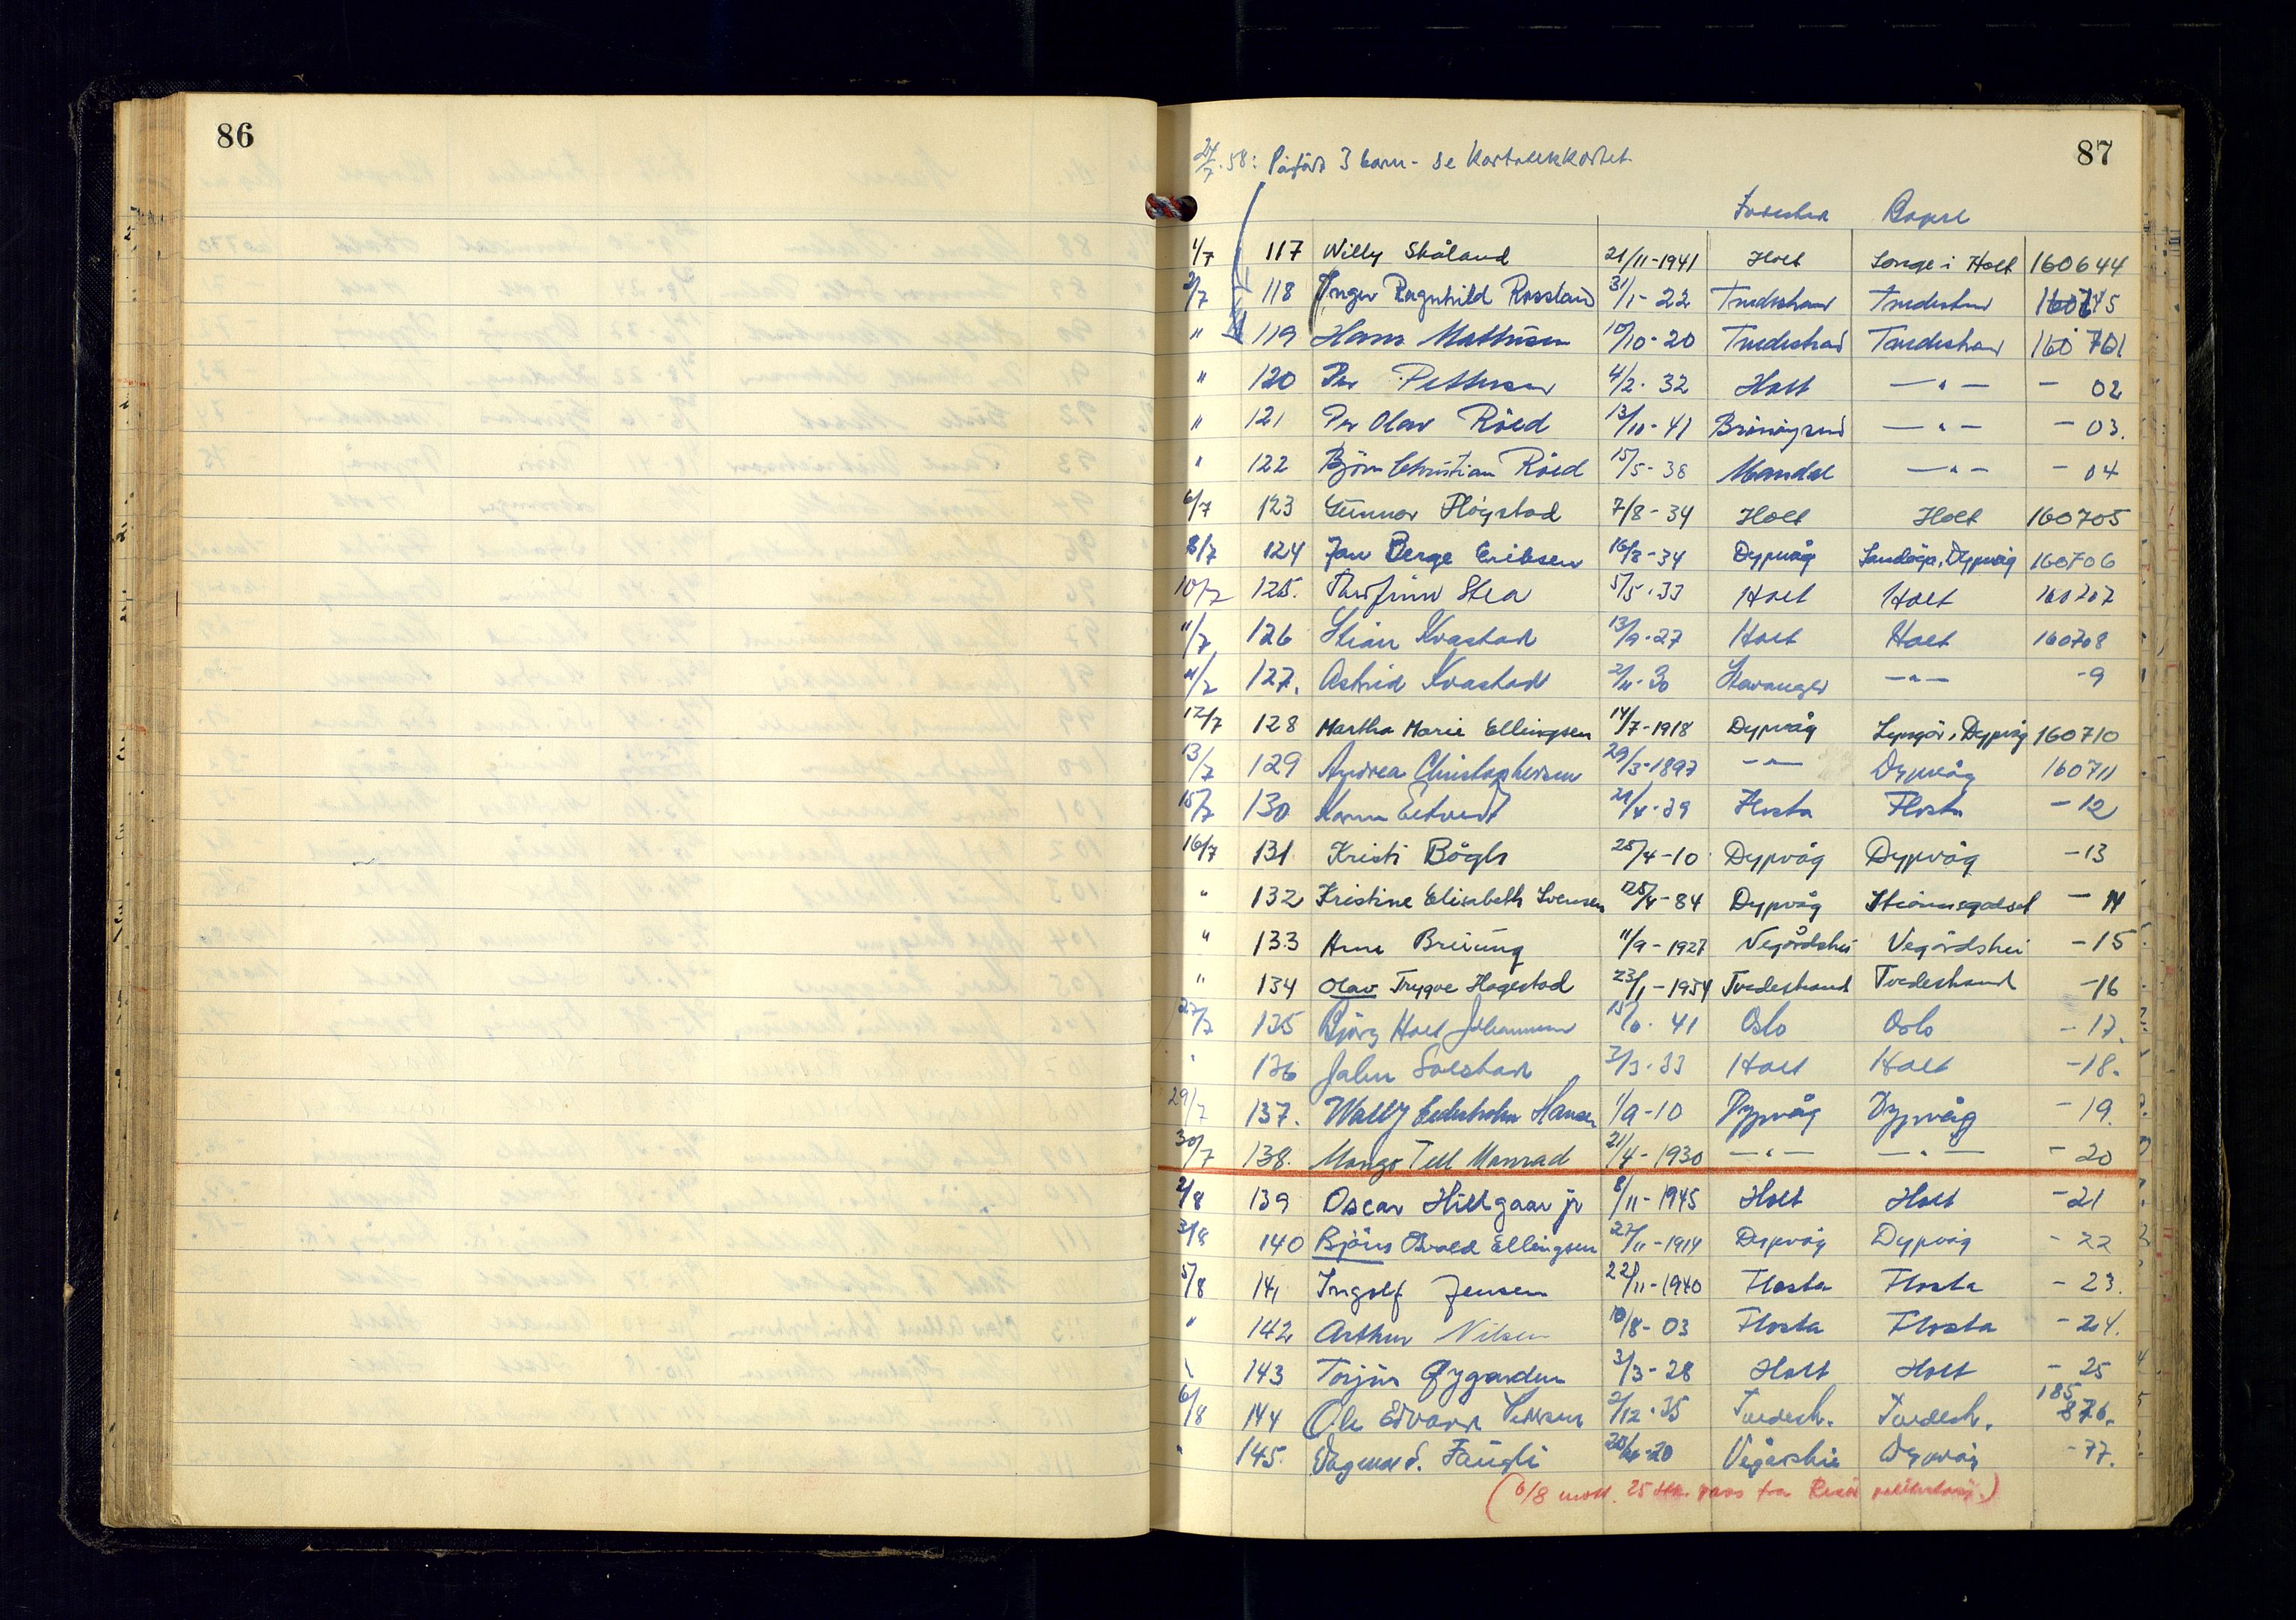 86
87
24/7.58: Påført 3 barn - se Kartotekkortet
Bopel
1/7 117 Willy Skåland 21/11-1941 Holt Songe i Holt 160644
2/7 118 Inger Ragnhild Rossland 31/1-22 Tvedestrand Tvedestrand 160645
" 119 Hans Mathisen 10/10-20 Tvedestrand Tvedestrand 160701
" 120 Per Pettersen 4/2-32 Holt - " - - 02
" 121 Per Olav Röed 13/10-41 Brönöysund - " - - 03.
" 122 Björn Christian Röed 15/5-38 Mandal - " - - 04
6/7 123 Gunnar Fløystad 7/8-34 Holt Holt 160705
8/7 124 Jan Berge Eriksen 16/8-34 Dypvåg Sandöya, Dypvåg 160706
10/7 125. Thorfinn Stea 5/5.33 Holt Holt 160707
11/7 126 Stian Kvastad 13/9-27 Holt Holt 160708
11/7 127. Astrid Kvastad 2/11-30 Stavanger - " - -9
12/7 128 Martha Marie Ellingsen 14/7-1918 Dypvåg Lyngör, Dypvåg 160710
13/7 129 Andrea Christophersen 29/3-1897 - " - Dypvåg 160711
15/7 130 Karin Eetvedt 21/4-39 Flosta Flosta - 12
16/7 131 Kristi Bögh 25/4-10 Dypvåg Dypvåg -13
" 132 Kristine Elisabeth Svensen 25/4-84 Dypvåg - 14
" 133 Arne Breiung 11/9-1927 Vegårdshei Vegårdshei -15
" 134 Olav Trygve Hagestad 23/1-1954 Tvedestrand Tvedestrand -16
27/7 135 Bjørg Holt Johannesen 15/6.41 Oslo Oslo - 17.
" 136 Solestad 3/3.33 Holt Holt -18.
29/7 137. Wally Hansen 1/9-10 Dypvåg Dypvåg - 19.
30/7 138. Mango Tell Monrad 21/4-1930 - " - - " - - 20
2/8 139 Oscar Hillgaar jr 8/11-1945 Holt Holt -21
3/8 140 Björn Osvald Ellingsen 27/11-1914 Dypvåg Dypvåg - 22
5/8 141 Ingolf Jensen 22/11-1940 Flosta Flosta - 23.
" 142 Arthur Nilsen 10/8-03 Flosta Flosta - 24.
143 Torjus Øygarden 3/3-28 Holt Holt - 25
6/8 144 Ole Edvard 2/12-35 Tvedestr. Tvedestr. 185 876.
" 145. Dagmar S. Fauske 20/4-20 Vegårshei Dypvåg -77.
(6/8 mott. 25 stk. pass fra Risör politikammer.)